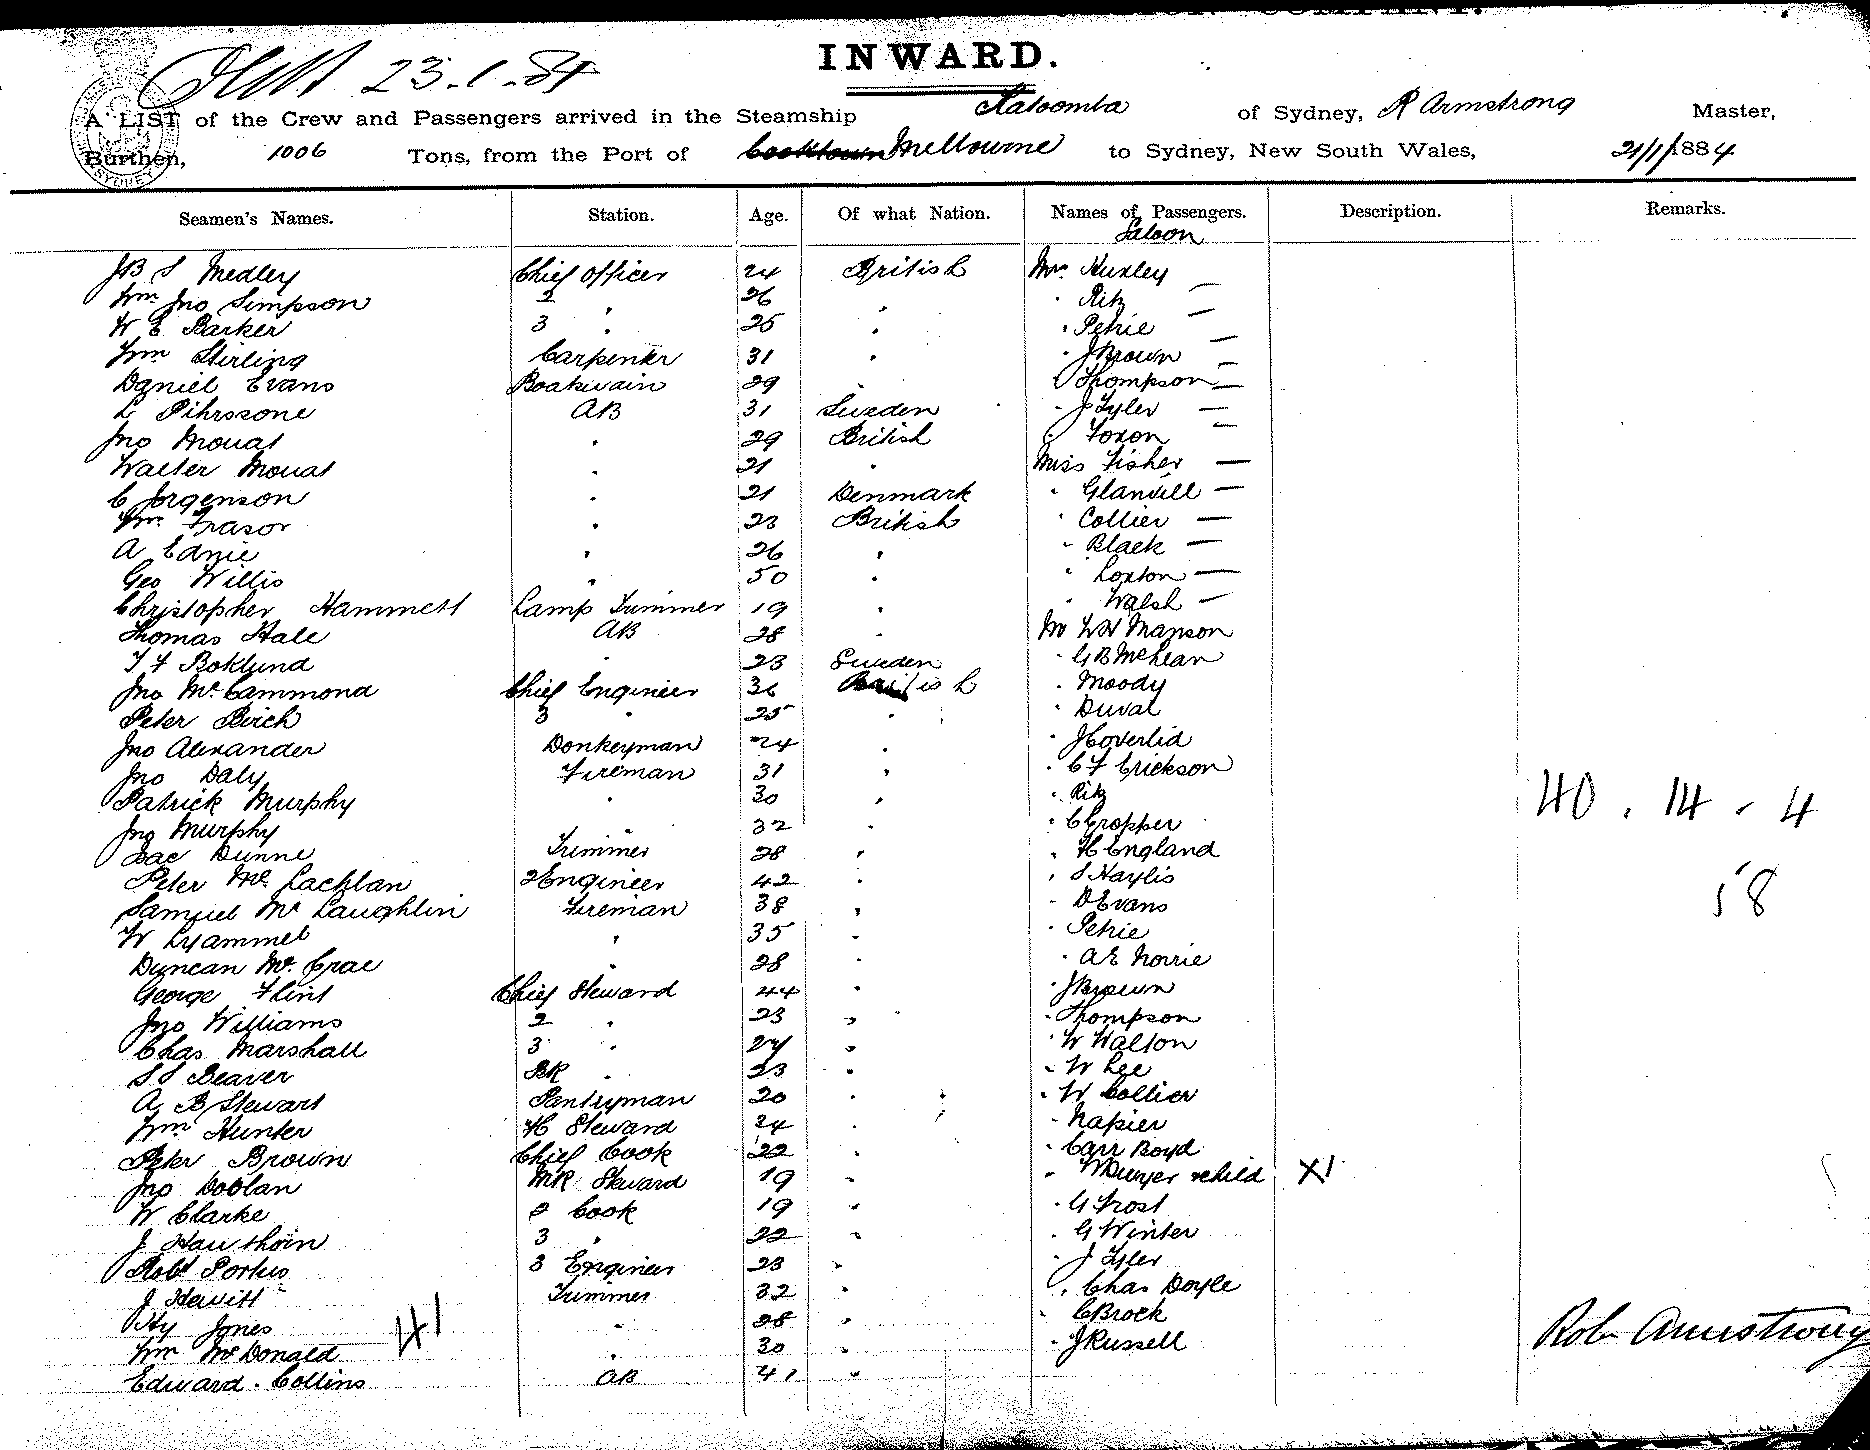 INWARD.
23.1.84
A LIST of the Crew and Passengers arrived in the Steamship Katoomba of Sydney, R Armstrong Master,
Burthen, 1006 Tons, from the Port of Cooktown Melbourne to Sydney, New South Wales, 21/1/1884
Seamen's Names. Station. Age. Of what Nation. Names of Passengers. Description. Remarks.
Saloon
J B S Medley Chief Officer 24 British Mrs Huxley —
Wm Jno Simpson 2 " 26 " " Ritz —
W E Barker 3 " 25 " " Petrie —
Wm Stirling Carpenter 31 " " J Brown —
Daniel Evans Boatswain 29 " " Thompson —
L Pihrszone AB 31 Sweden " J Tyler —
Jno Mouat " 29 British " Foxon —
Walter Mouat " 21 " Miss Fisher —
C Jorgenson " 21 Denmark " Glanvill —
Wm Frasor " 23 British " Collier —
A Ednie " 26 " " Black —
Geo Willis " 50 " " Loxton —
Christopher Hammett Lamp Trimmer 19 " " Walsh —
Thomas Hale AB 28 " Mr Manson
T F Boklund " 23 Sweden " G B McLean
Jno McCammond Chief Engineer 36 British " Moody
Peter Birch 3 " 25 " " Duval
Jno Alexander Donkeyman 24 " " J Coverlid
Jno Daly Fireman 31 " " C F Erickson
Patrick Murphy " 30 " " Ritz
Jno Murphy " 32 " " C Cropper
Isac Dunne Trimmer 28 " " H England
Peter McLachlan 2 Engineer 42 " " S Haylis
Samuel McLaughlin Fireman 38 " " D Evans
W Lyammel " 35 " " Petrie
Duncan McCrae " 28 " " A E Norrie
George Flint Chief Steward 44 " " J Brown
Jno Williams 2 " 23 " " Thompson
Chas Marshall 3 " 27 " " W Walton
S S Beaver BK " 23 " " W Lee
A B Stewart Pantryman 20 " " W Collier
Wm Hunter FC Steward 24 " " Napier
Peter Brown Chief Cook 22 " " Carr Boyd
Jno Doolan MR Steward 19 " " W Dwyer & child X1
W Clarke 2 Cook 19 " " G Frost
J Hawthorn 3 " 22 " " G Winter
Robt Portus 3 Engineer 23 " " J Tyler
J Hewitt Trimmer 32 " " Chas Doyle
Hy Jones " 28 " " C Brock
Wm McDonald " 30 " " J Russell
Edward Collins AB 41 "
41
40 . 14 . 4
58
Rob Armstrong